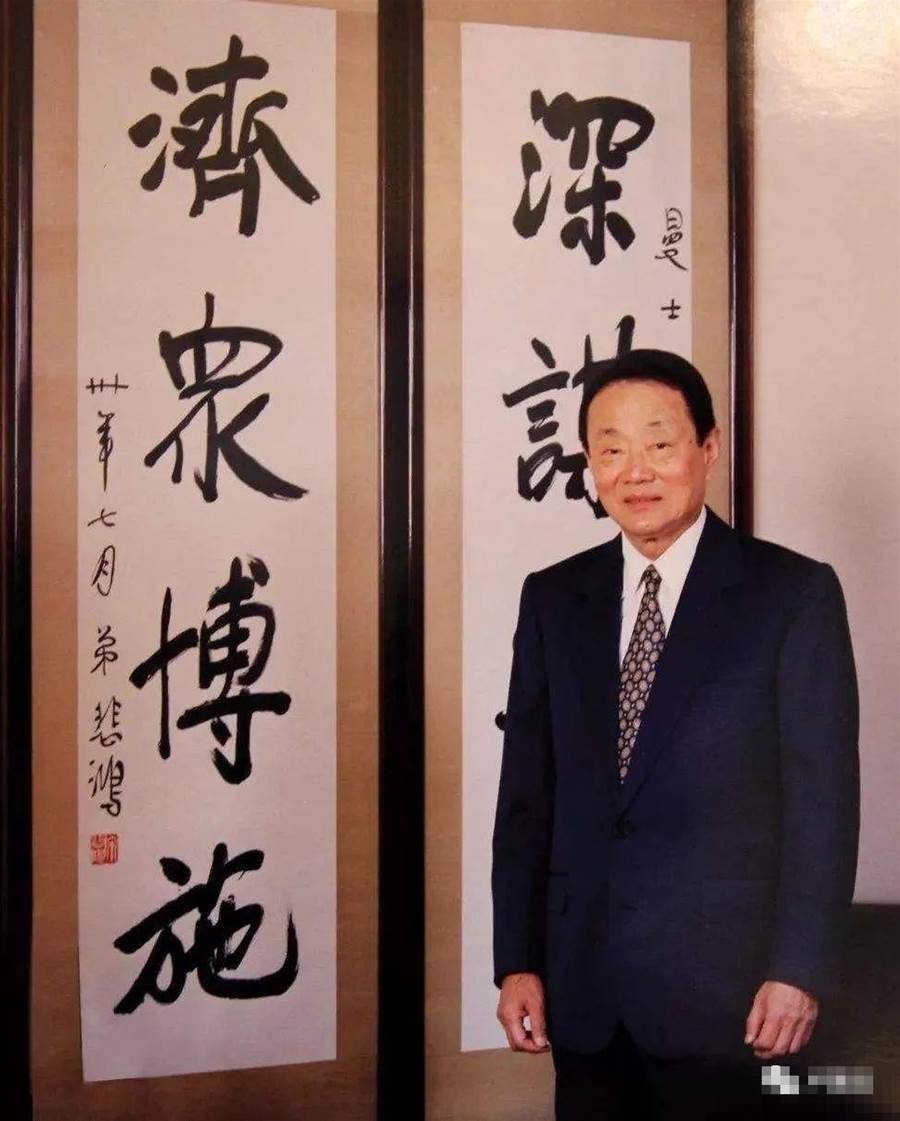 曼士
深謀
濟衆博施
卅年七月弟悲鴻